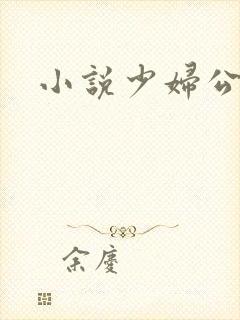 小說少婦公
余慶